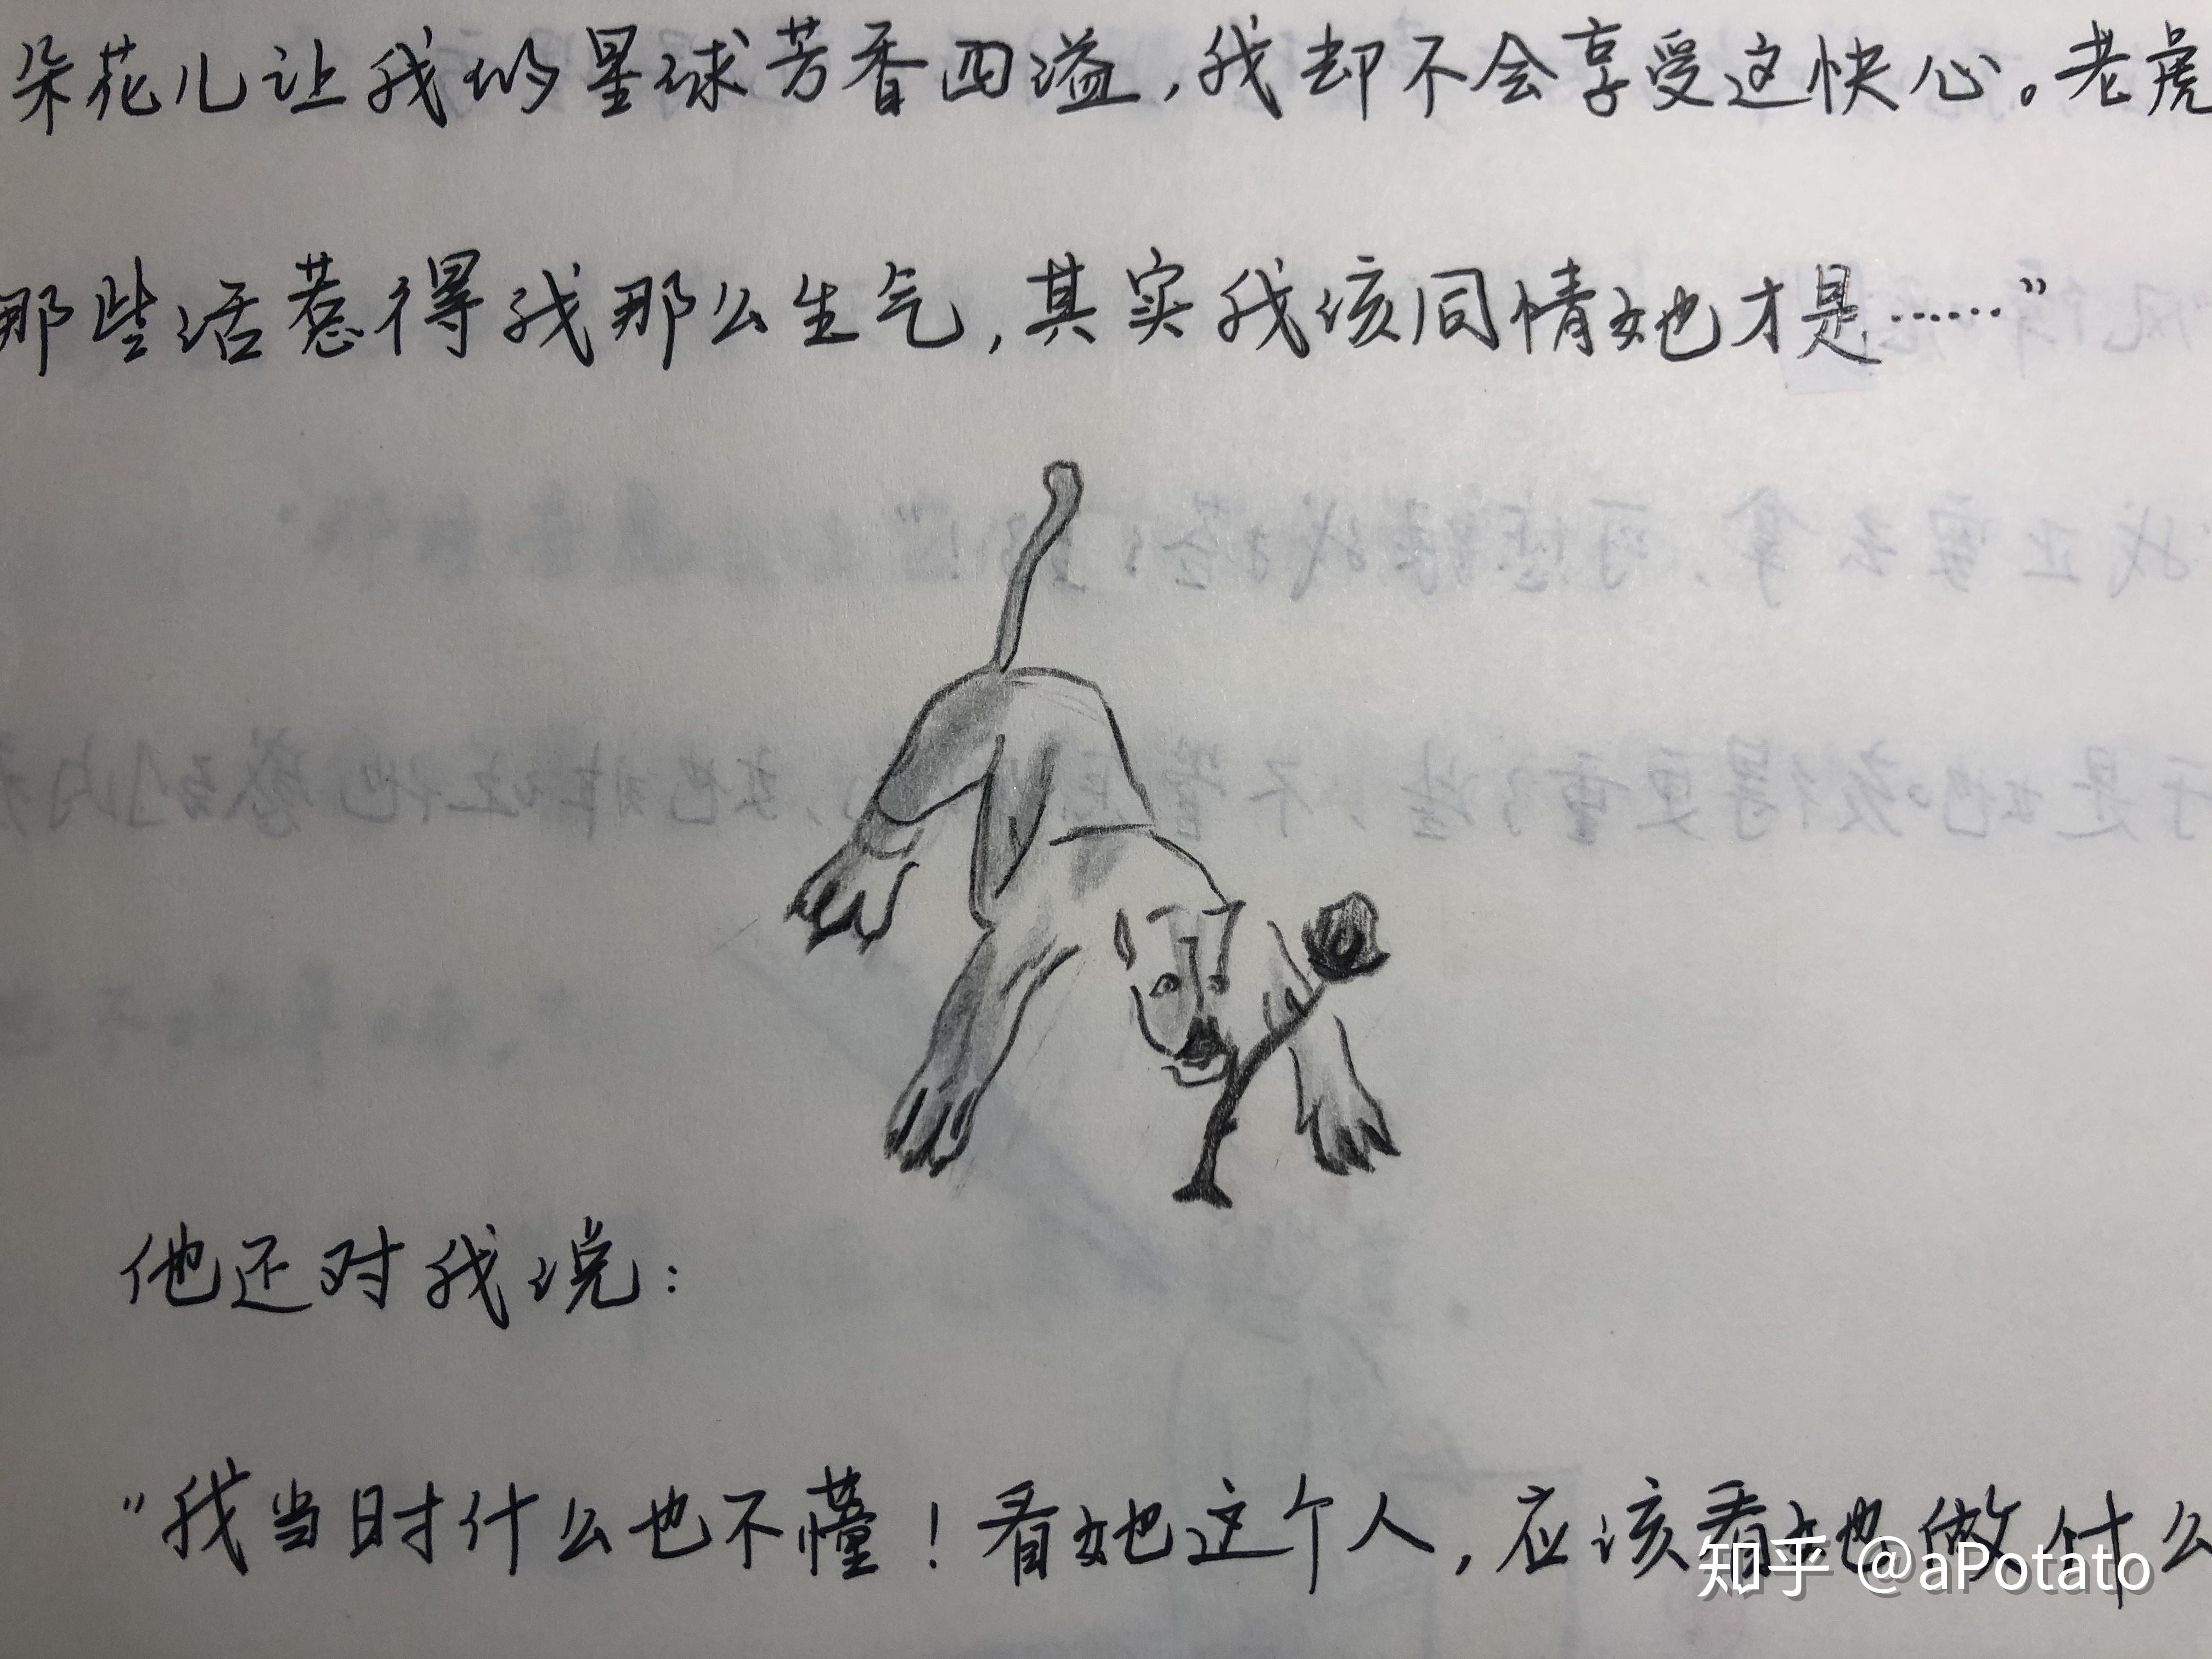 朵花儿让我的星球芳香四溢，我却不会享受这快心。老虎
那些话惹得我那么生气，其实我该同情她才是……”
他还对我说：
“我当时什么也不懂！看她这个人，应该看她做什么
知乎 @aPotato